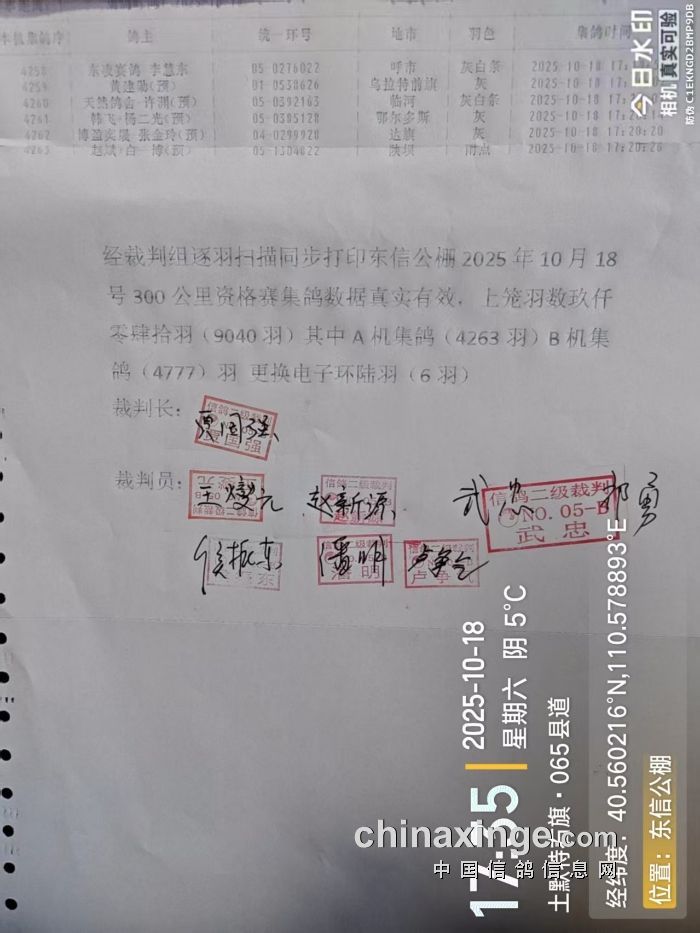 鸽主 统一环号 地市 羽色 集鸽时间
4258 东凌赛鸽 李慧东 05-0276022 呼市 灰白条 2025-10-18
4259 黄建勋(预) 01-0538626 乌拉特前旗 灰 2025-10-18
4260 05-0392163 临河 灰白条 2025-10-18
4261 韩飞+杨二光(预) 05-0385128 鄂尔多斯 灰 2025-10-18
4262 博盈实战-张金玲(预) 04-0299928 达旗 灰 2025-10-18 17:20:20
4263 赵斌+白一博(预) 05-1304822 陕坝 雨点 2025-10-18 17:20:20
经裁判组逐羽扫描同步打印东信公棚 2025 年 10 月 18
号 300 公里资格赛集鸽数据真实有效，上笼羽数玖仟
零肆拾羽（9040 羽）其中 A 机集鸽（4263 羽）B 机集
鸽（4777）羽 更换电子环陆羽（6 羽）
裁判长：
贾国强
信鸽二级裁判
贾国强
裁判员：
王燮元 赵新源 武忠 郭勇
信鸽二级裁判
信鸽二级裁判
NO. 05-B
武忠
侯振东 潘明 卢争
潘明
卢争
今日水印
相机 真实可验
防伪 C1EKNGD2BMP9DB
17:35
2025-10-18
星期六 阴 5℃
土默特右旗·065县道
经纬度：40.560216°N,110.578893°E
位置：东信公棚
chinaxinge.com
中国信鸽信息网